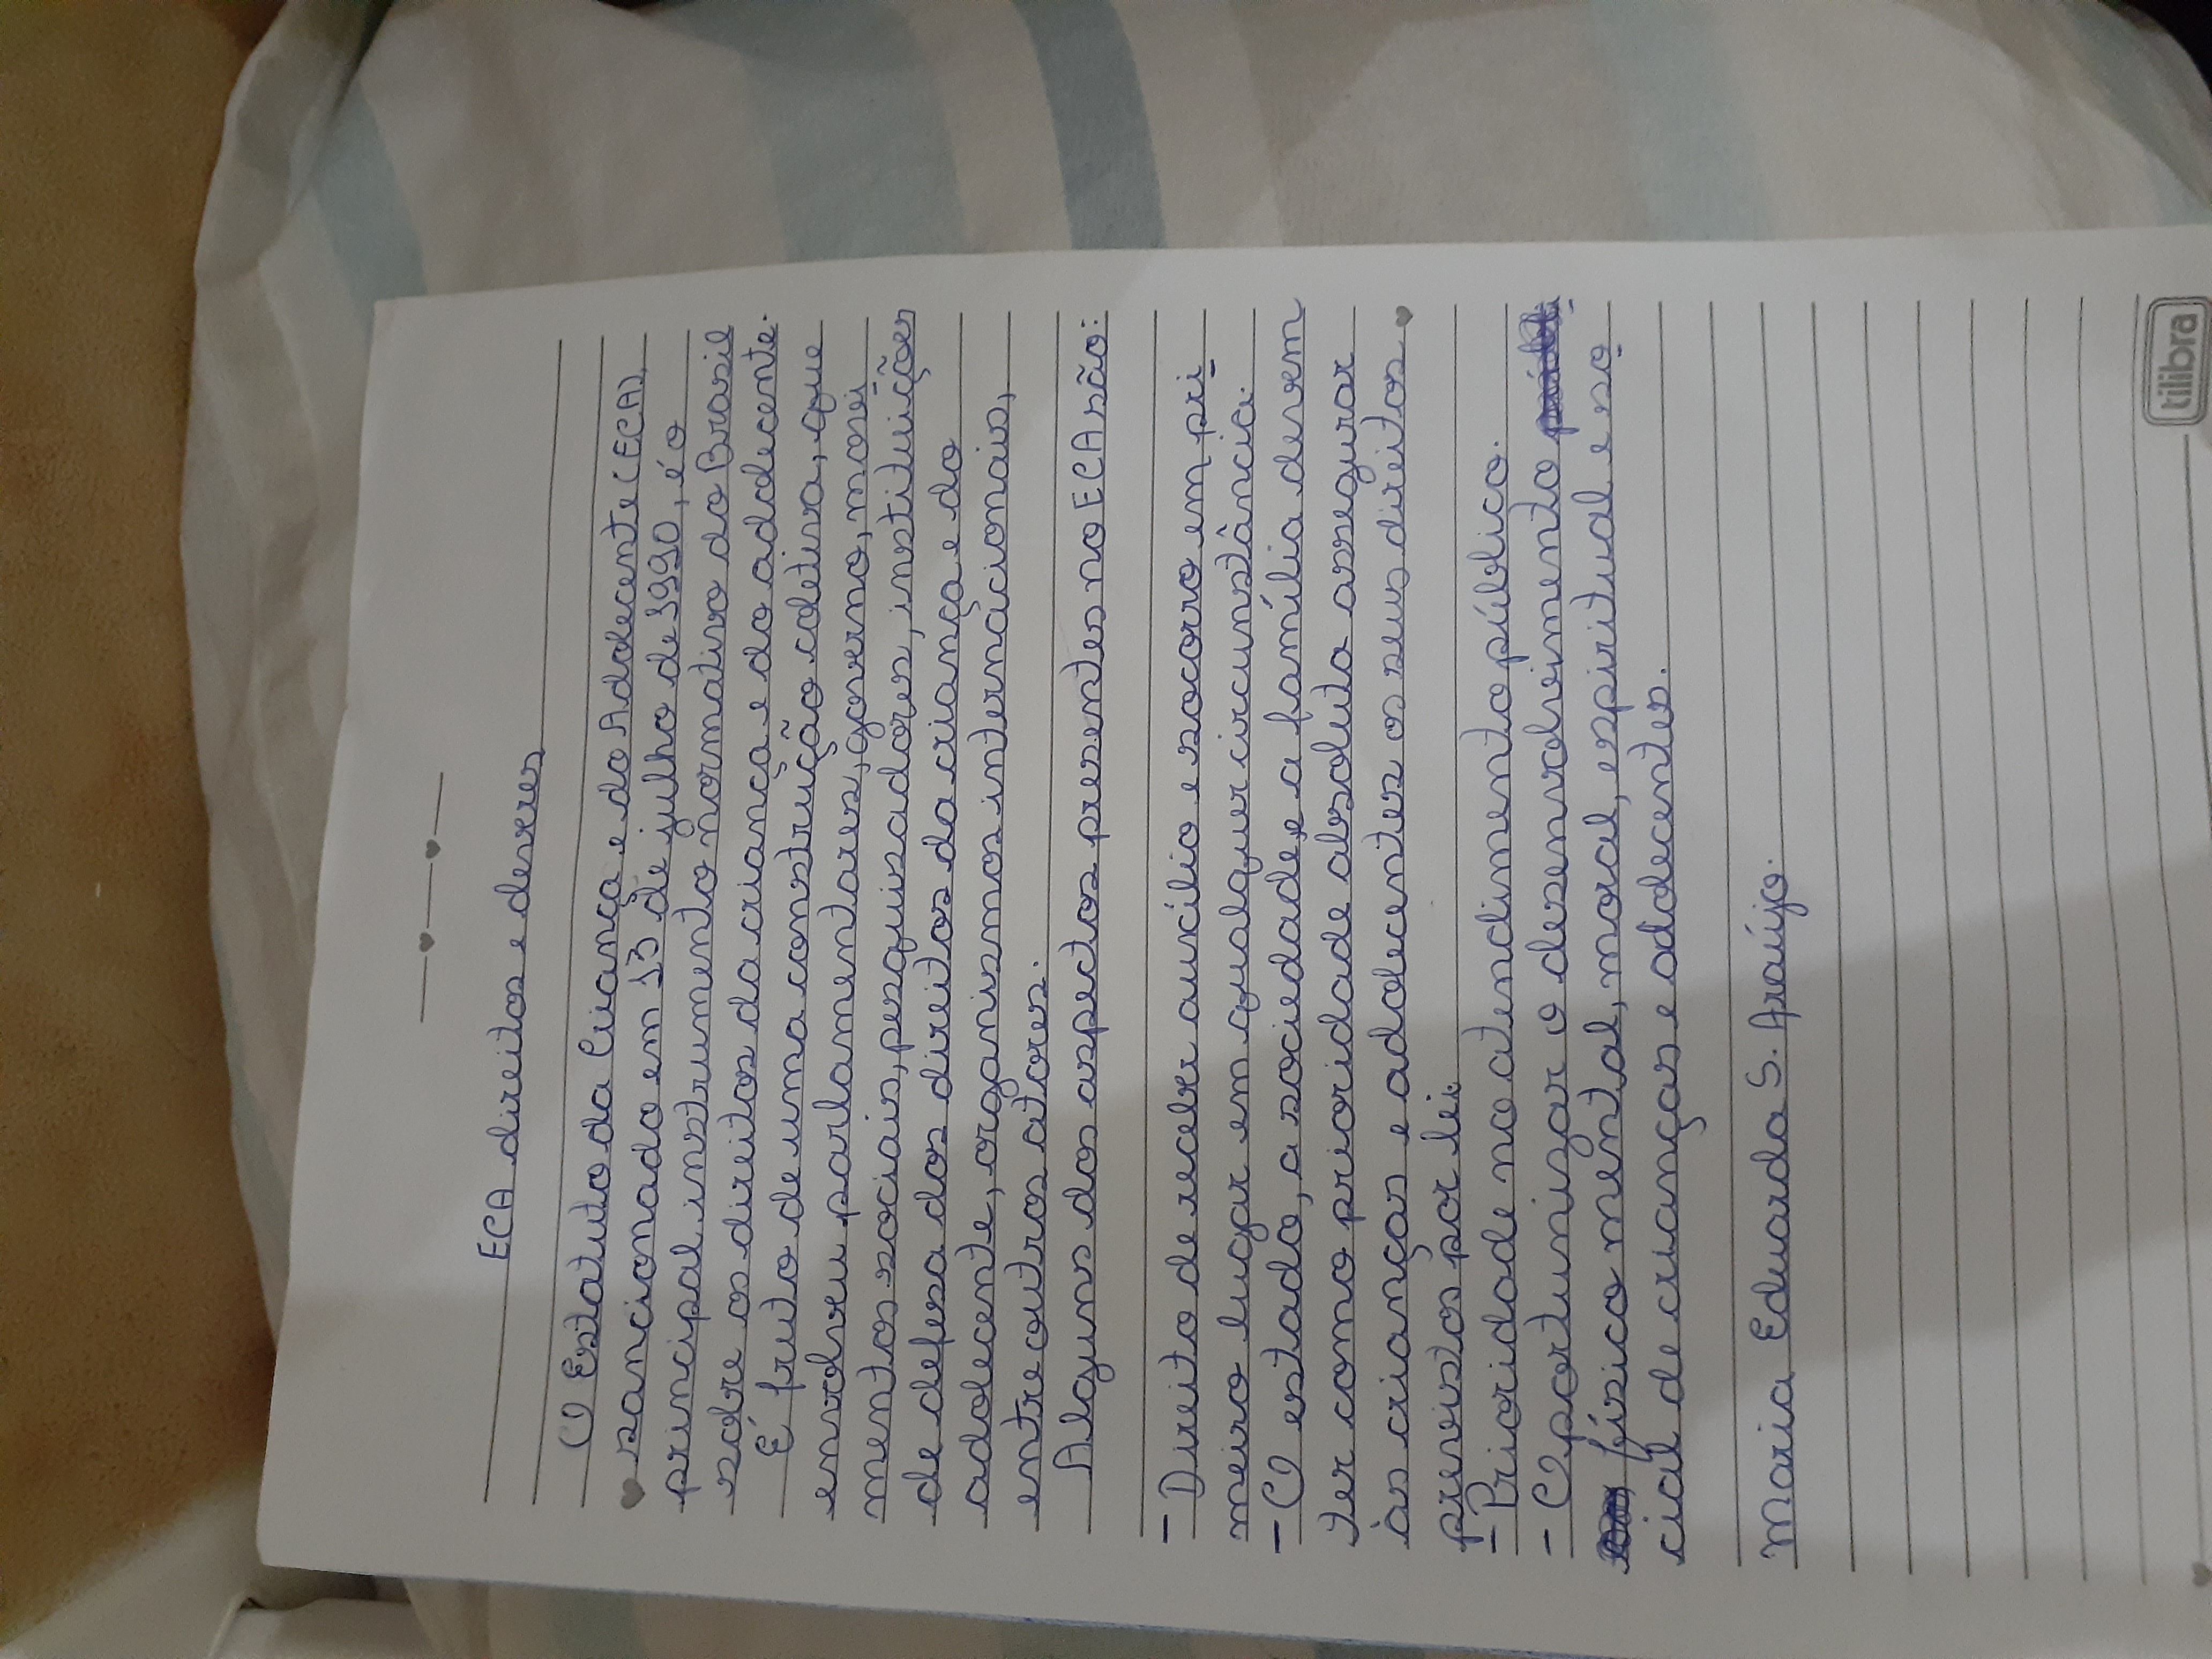 ECA direitos e deveres
O Estatuto da Criança e do Adolecente (ECA),
sancionado em 13 de julho de 1990, é o
principal instrumento normativo do Brasil
sobre os direitos da criança e do adolecente.
É fruto de uma construção coletiva, que
envolveu parlamentares, governo, movi
mentos sociais, pesquisadores, instituições
de defesa dos direitos da criança e do
adolecente, organismos internacionais,
entre outros atores.
Alguns dos aspectos presentes no ECA são:
- Direito de receber auxílio e socorro em pri
meiro lugar em qualquer circunstância.
- O estado, a sociedade, e a família devem
ter como prioridade absoluta assegurar
às crianças e adolecentes os seus direitos
previstos por lei.
- Prioridade no atendimento público.
- Oportunizar o desenvolvimento
físico mental, moral, espiritual e so
cial de crianças e adolecentes.
Maria Eduarda S. Araújo.
tilibra